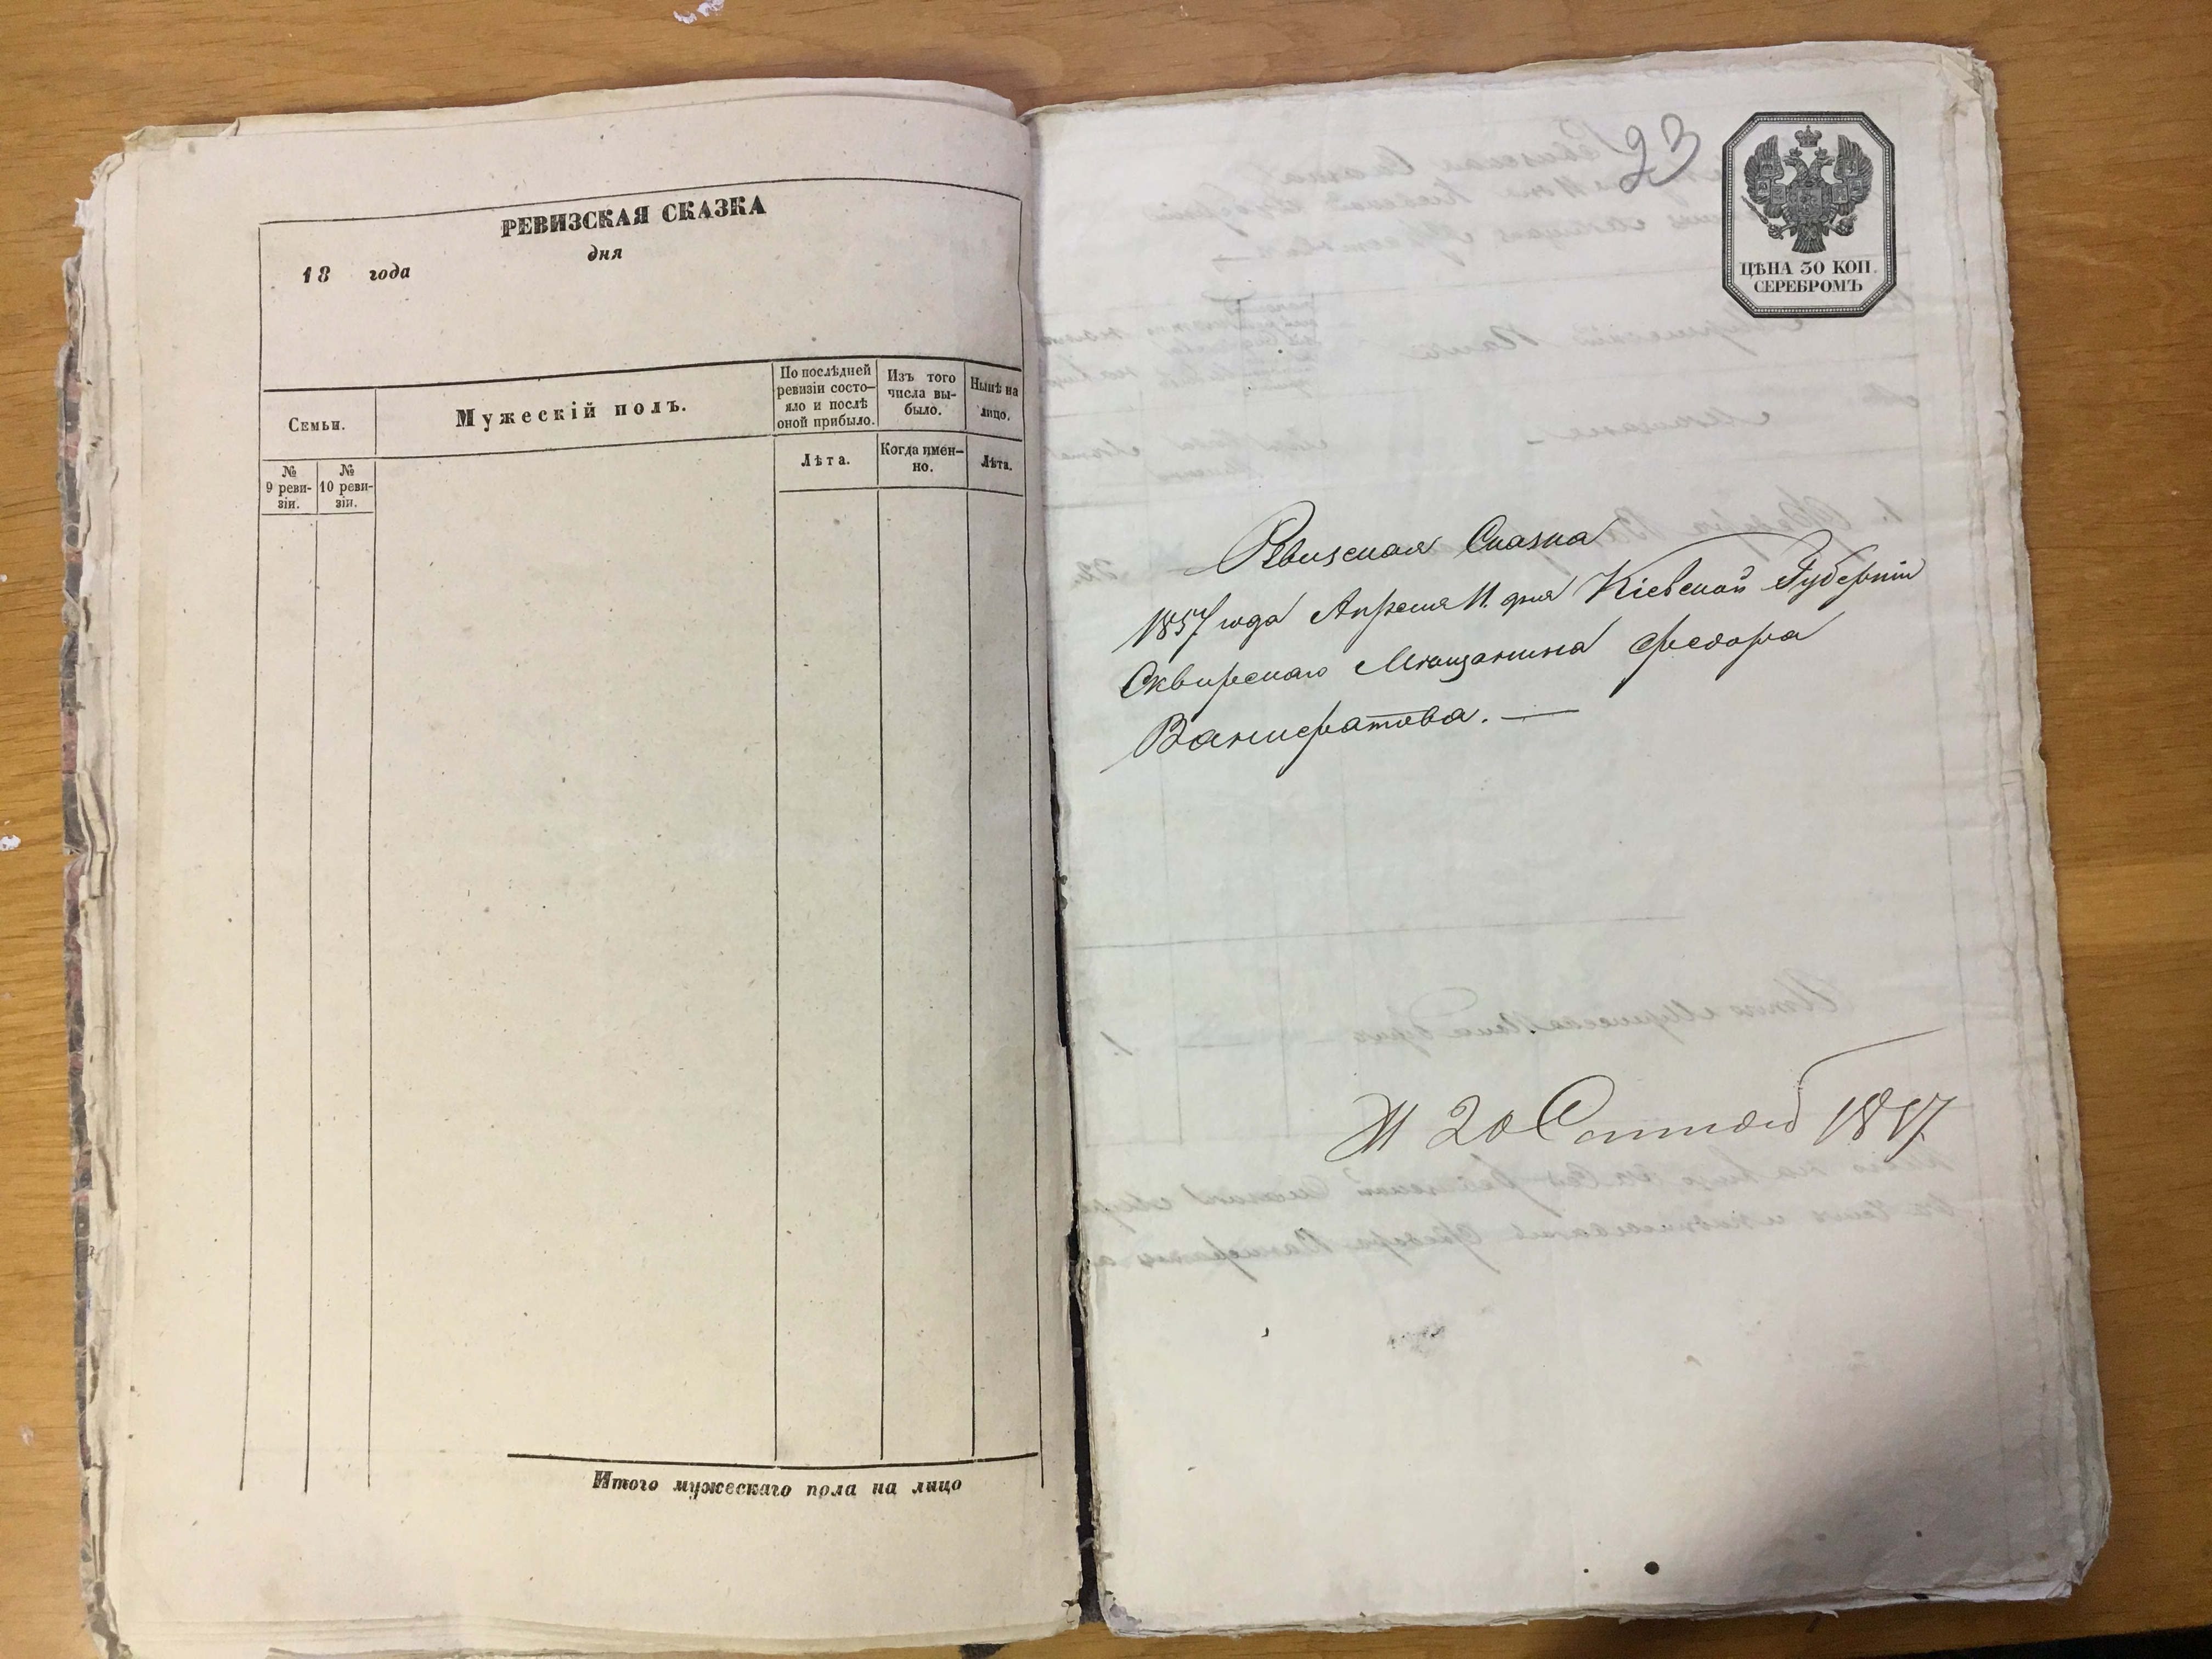 РЕВИЗСКАЯ СКАЗКА
дня
18 года
Семьи.
Мужескій полъ.
По послѣдней
ревизіи состо-
яло и послѣ
оной прибыло.
Изъ того
числа вы-
было.
Нынѣ на
лицо.
№
9 реви-
зіи.
№
10 реви-
зіи.
Лѣта.
Когда имен-
но.
Лѣта.
Итого мужескаго пола на лицо
23
ЦѢНА 30 КОП.
СЕРЕБРОМЪ
Ревизская Сказка
1857 года Апреля 11. дня Кіевской Губерніи
Сквирскаго Мещанина Федора
Ванифатова. —
20 1857